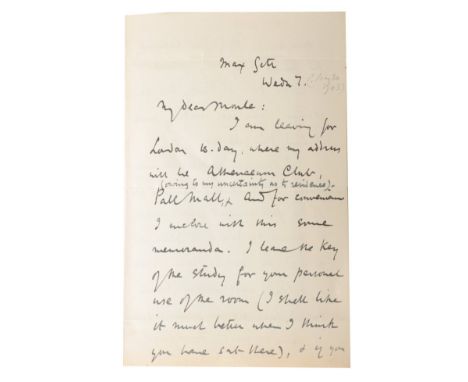 Max Gate
Wedn 7.
My dear Moule:
I am leaving for
London to-day, where my address
will be Athenaeum Club,
(owing to my uncertainty as to residence)
Pall Mall, And for convenience
I enclose with this some
memoranda. I leave the key
of the study for your personal
use of the room (I shall like
it much better when I think
you have sat there), & if you